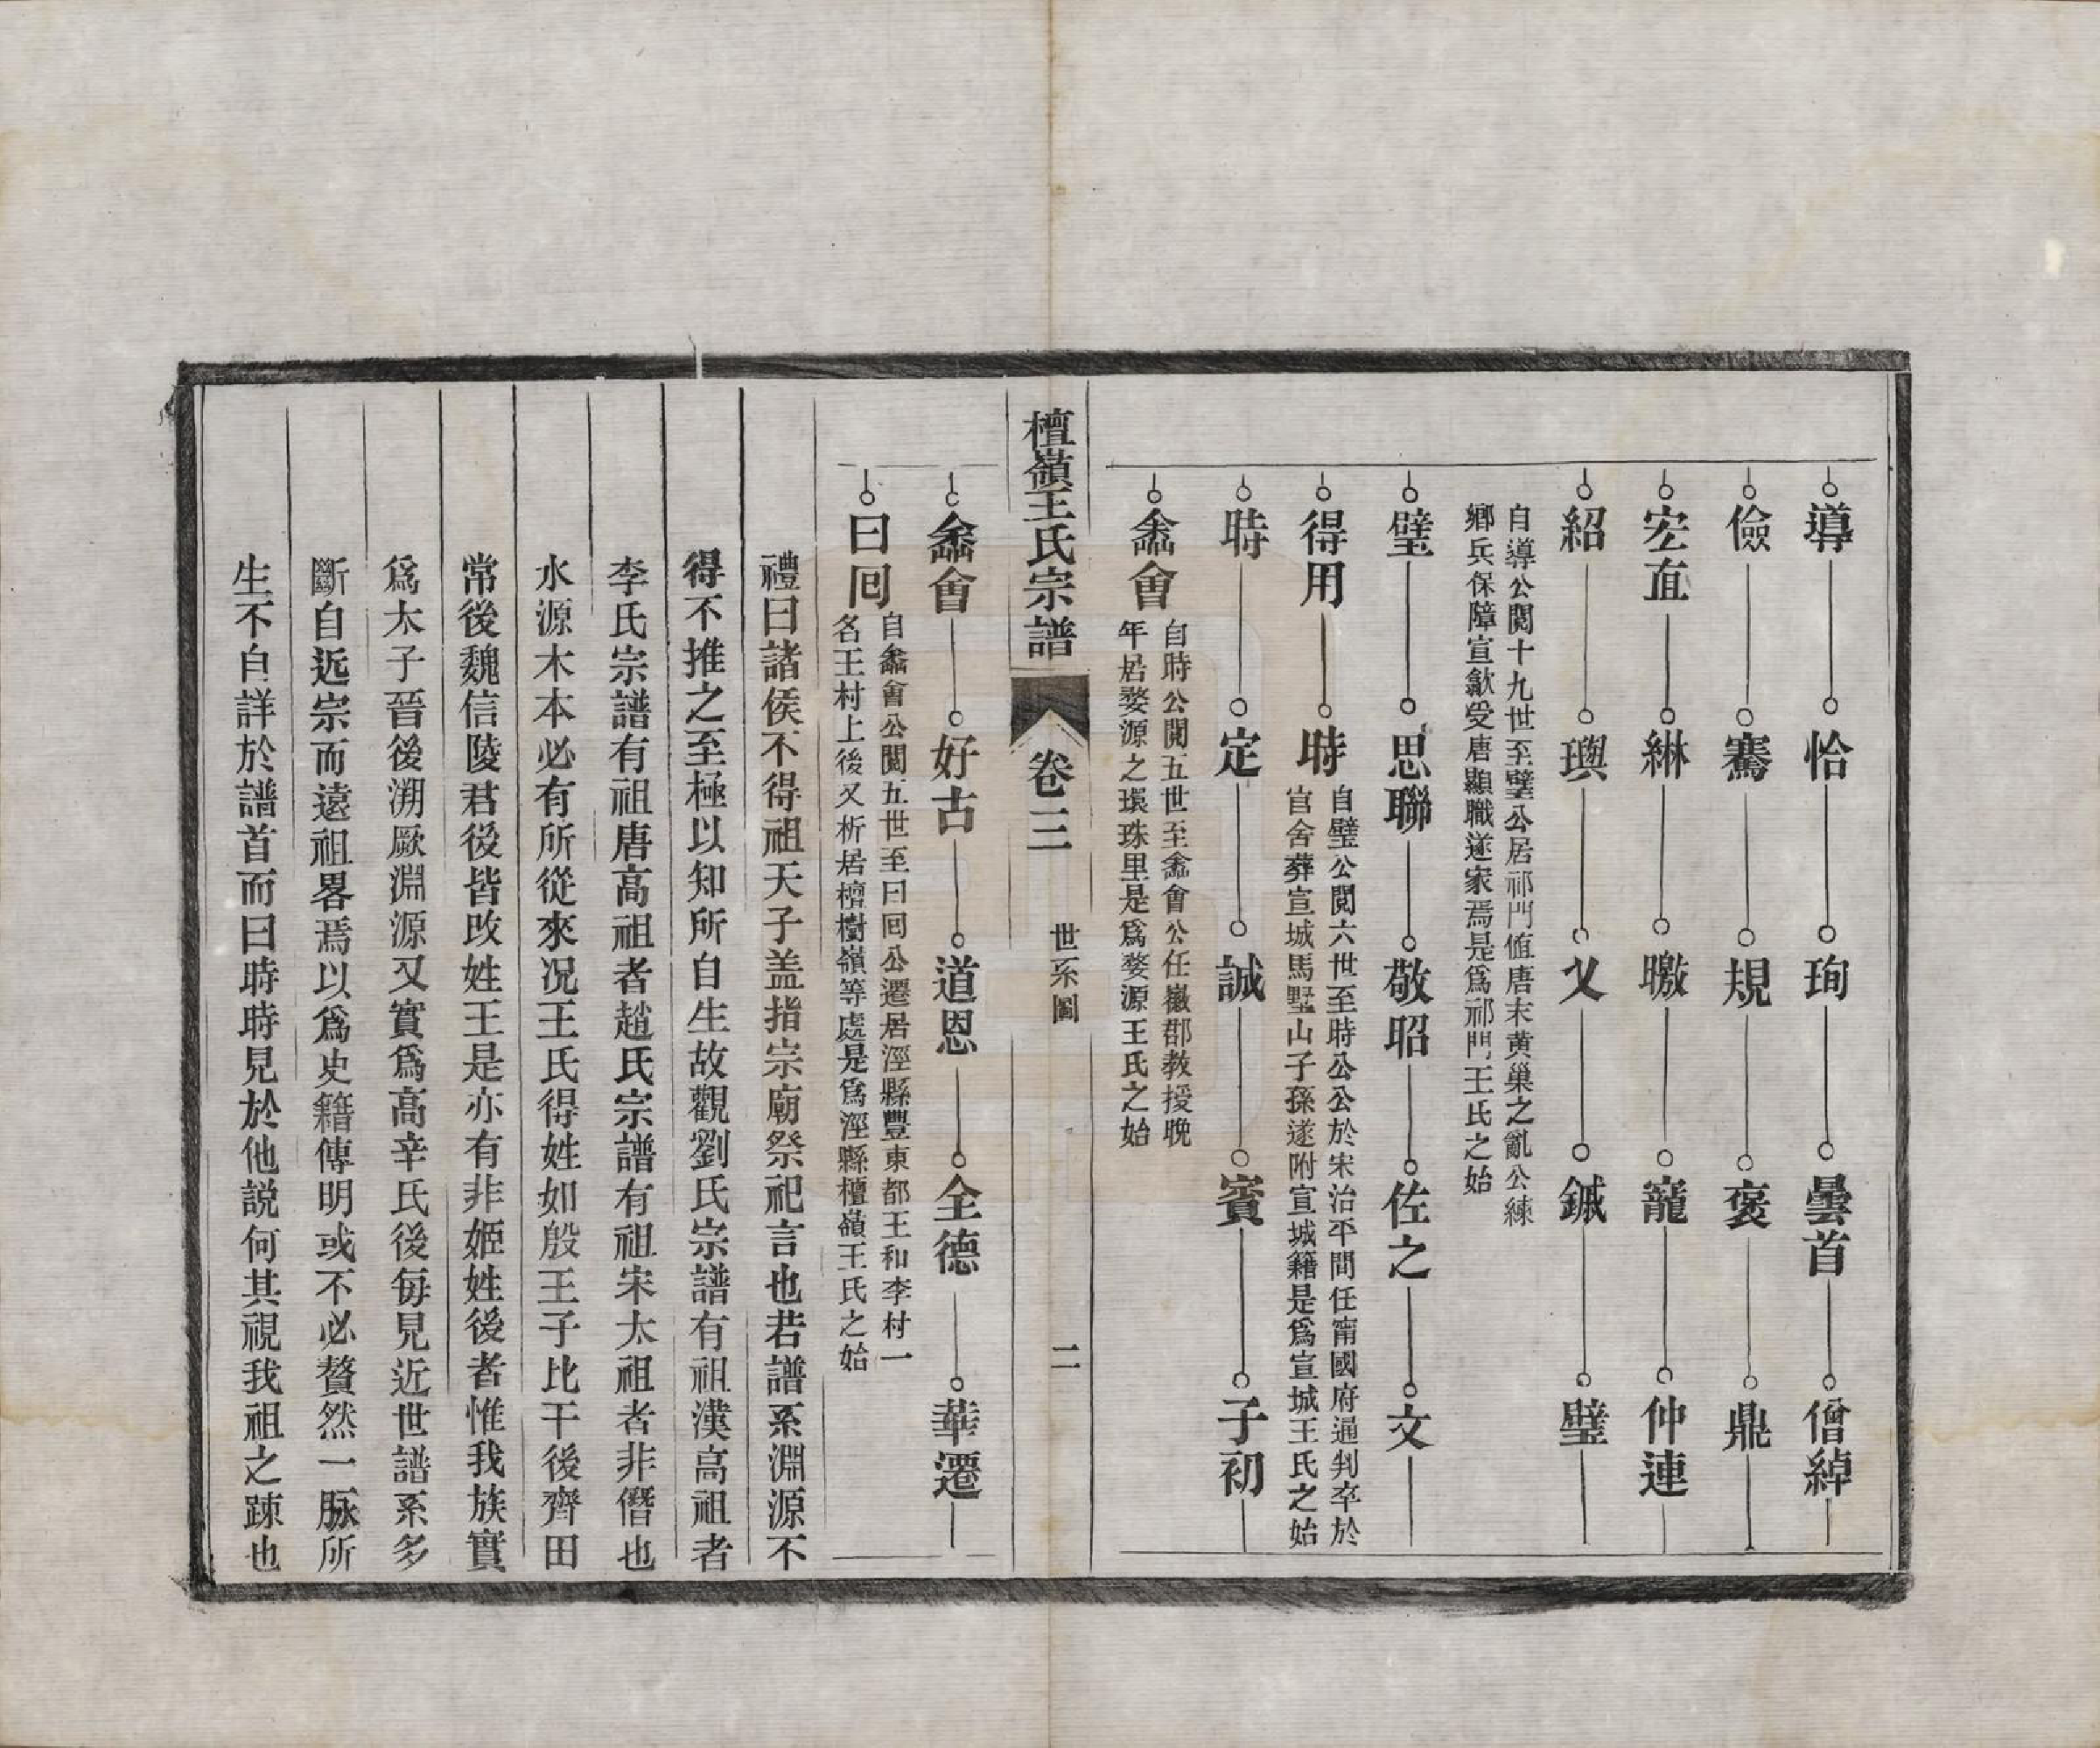 導 恰 珣 曇首 僧綽
儉 騫 規 褒 鼎
宏直 綝 曒 寵 仲連
紹 璵 乂 鍼 璧
自導公閱十九世至璧公居祁門値唐末黄巢之亂公練
鄉兵保障宣歙受唐顯職遂家焉是爲祁門王氏之始
璧 思聯 敬昭 佐之 文
得用 時
自璧公閱六世至時公公於宋治平間任甯國府通判卒於
官舍葬宣城馬墅山子孫遂附宣城籍是爲宣城王氏之始
時 定 誠 賓 子初
龠會
自時公閱五世至龠會公任徽郡教授晚
年居婺源之環珠里是爲婺源王氏之始
檀嶺王氏宗譜 卷三 世系圖 二
龠會 好古 道恩 全德 華遷
曰囘
自龠會公閱五世至曰囘公遷居涇縣豐東都王和李村一
名王村上後又析居檀樹嶺等處是爲涇縣檀嶺王氏之始
禮曰諸侯不得祖天子盖指宗廟祭祀言也若譜系淵源不
得不推之至極以知所自生故觀劉氏宗譜有祖漢高祖者
李氏宗譜有祖唐高祖者趙氏宗譜有祖宋太祖者非僭也
水源木本必有所從來况王氏得姓如殷王子比干後齊田
常後魏信陵君後皆改姓王是亦有非姬姓後者惟我族實
爲太子晉後溯厥淵源又實爲高辛氏後每見近世譜系多
斷自近宗而遠祖畧焉以爲史籍傳明或不必贅然一脉所
生不自詳於譜首而曰時時見於他説何其視我祖之踈也